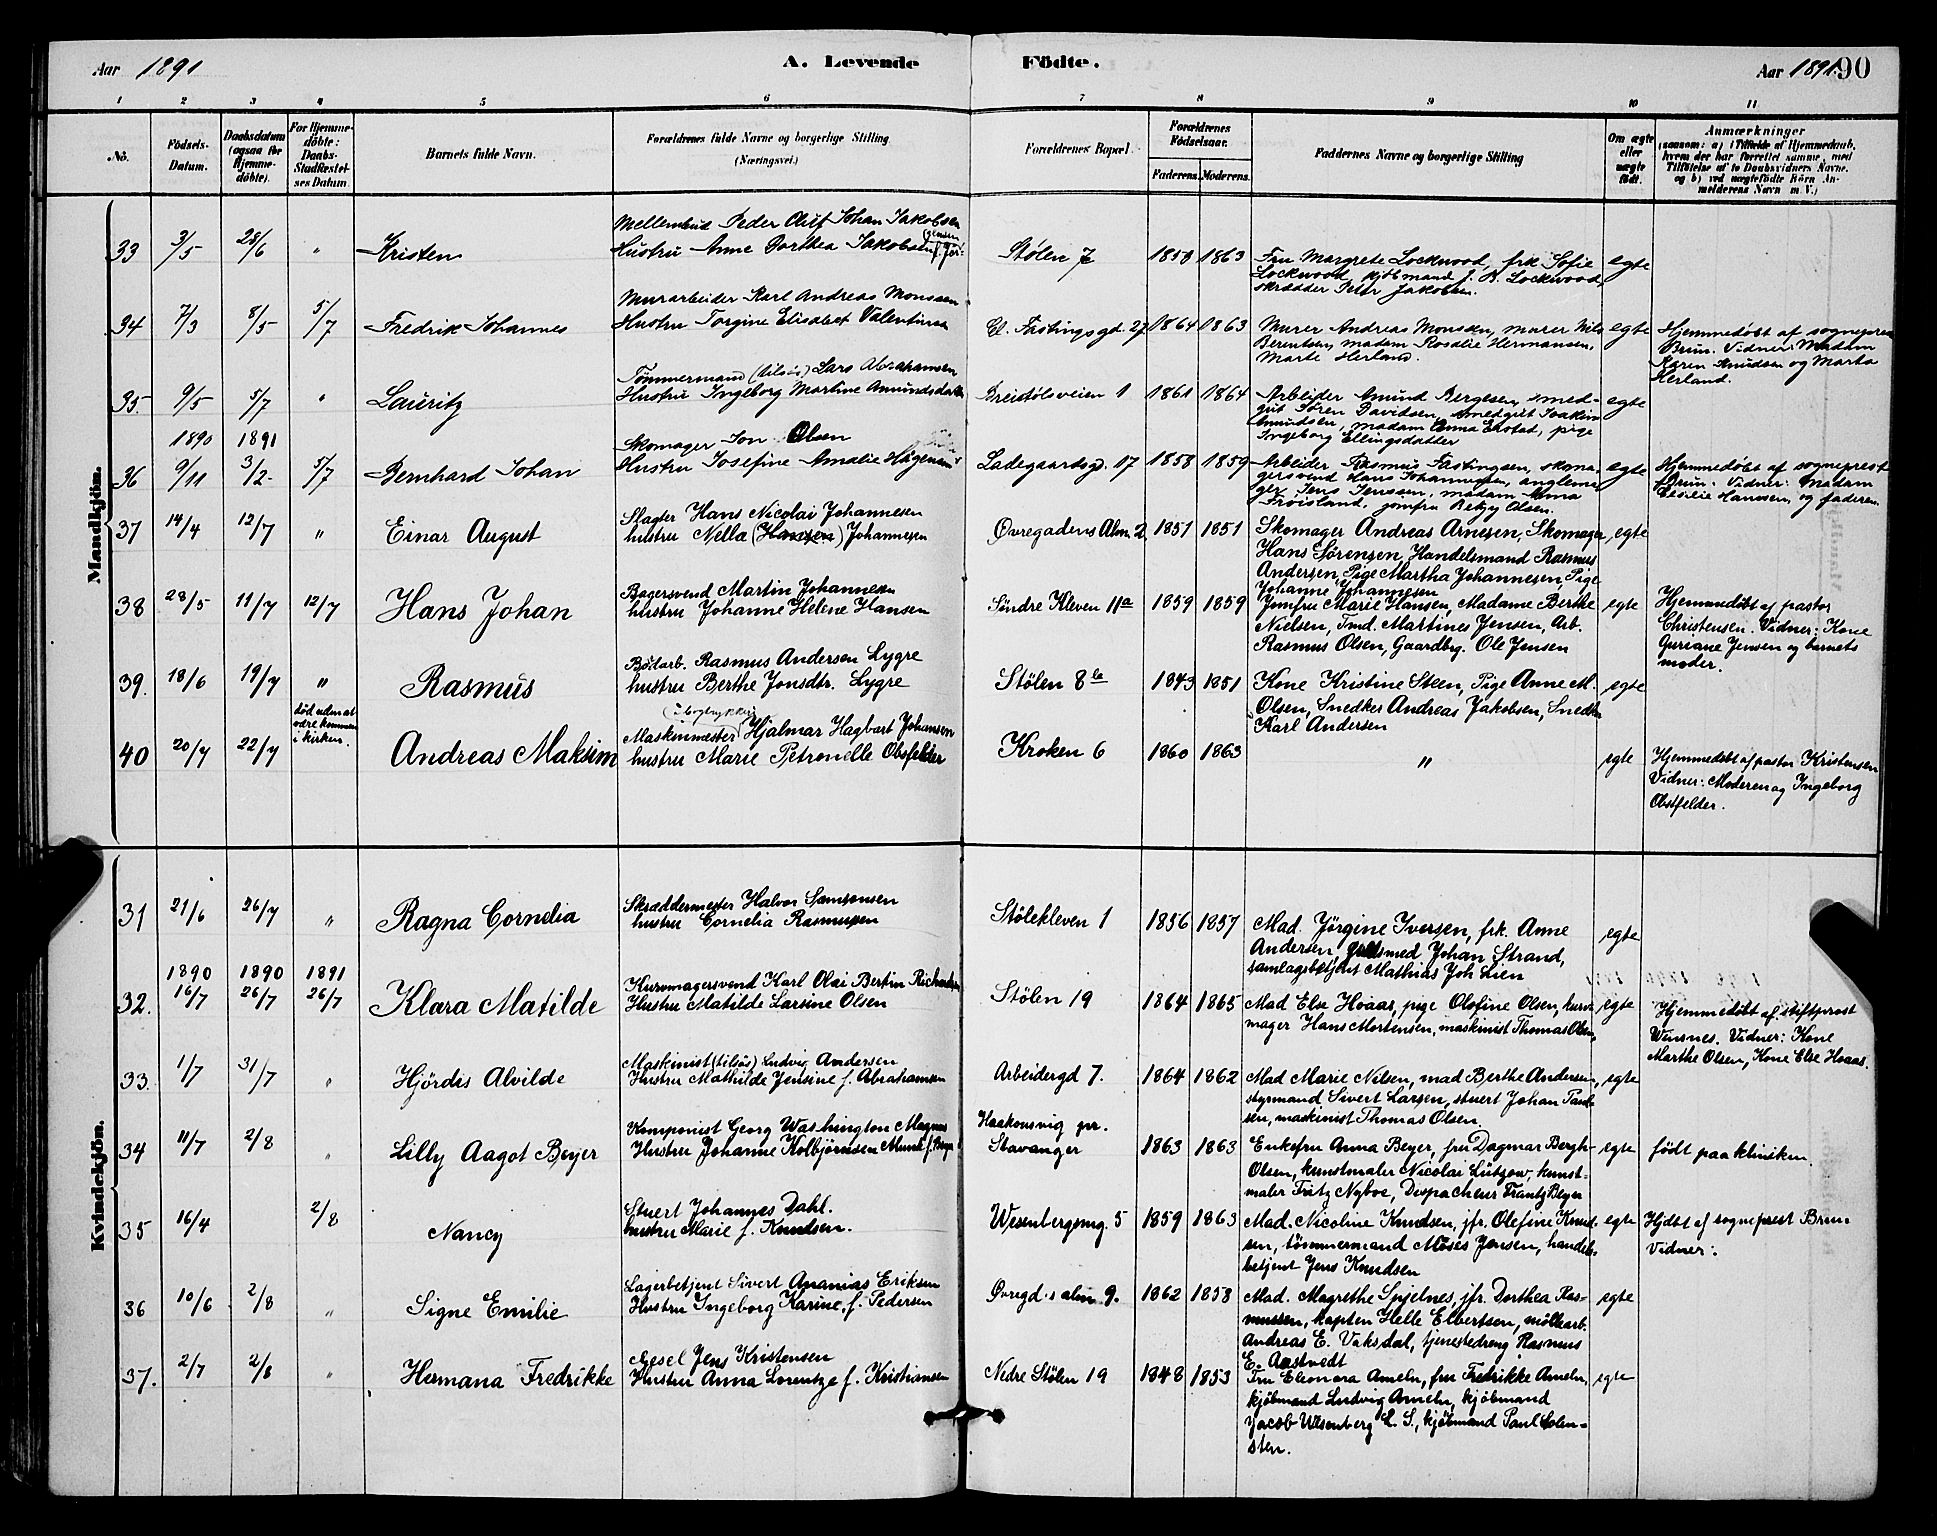 Aar 1891
A. Levende
Födte.
Aar 1891. 90
1 2 3 4 5 6 7 8 9 10 11
No.
Födsels-Datum.
Daabsdatum (ogsaa for Hjemme-döbte).
For Hjemme-döbte: Daabs-Stadfæstel-ses Datum.
Barnets fulde Navn.
Forældrenes fulde Navne og borgerlige Stilling
(Næringsvei.)
Forældrenes Bopæl.
Forældrenes Födselsaar.
Faderens. Moderens.
Faddernes Navne og borgerlige Stilling
Om ægte eller uægte födt.
Anmærkninger
(saasom: a) i Tilfælde af Hjemmedaab,
hvem der har forrettet samme, med
Tilföielse af to Daabsvidners Navne.
og b) ved uægtefödte Börn An-
melderens Navn m. V.)
Mandkjön.
33 3/5 28/6 " Kristen
Mellembud Peder Oluf Johan Jakobsen
Hustru Anne Dorthea Jakobsen f. Jör-
gensen
Stølen 7 1858 1863
Fru Margrete Lockwood, frk Sofie
Lockwood, kjøbmand J. B. Lockwood,
skrædder Petr Jakobsen.
egte
34 7/3 8/5 5/7 Fredrik Johannes
Murarbeider Karl Andreas Monssen
Hustru Torgine Elisabet Valentinsen
Cl. Fastingsgd. 27 1864 1863
Murer Andreas Monsen, murer Nils
Berentsen, madam Rosalie Hermansen,
Marte Herland.
egte
Hjemmedøbt af sogneprest
Brun. Vidner: Madam
Karen Knudsen og Marta
Herland.
35 9/5 5/7 " Lauritz
Tømmermand (tilsøs) Lars Abrahamsen
Hustru Ingeborg Martine Amundsdatter
Breistølsveien 1 1861 1864
Arbeider Amund Bergesen, smed-
gut Søren Davidsen, smedgut Joakim
Amundsen, madam Anna Erstad, pige
Ingeborg Ellingsdatter
egte
1890 1891
36 9/11 3/2 5/7 Bernhard Johan
Skomager Jon Olsen
Hustru Josefine Amalie Hågensen
Ladegaardsgd. 17 1858 1859
Arbeider Rasmus Fastingsen, skoma-
gersvend Hans Johannesen, anglema-
ger Jens Jenssen, madam Anna
Frøisland, jomfru Betzy Olsen.
egte
Hjemmedøbt af sogneprest
Brun. Vidner: Madam
Cesilie Hanssen, og faderen
37 14/4 12/7 " Einar August
Slagter Hans Nicolai Johannesen
hustru Nella (Hansen) Johannesen
Øvregadens Alm. 2 1851 1851
Skomager Andreas Arnesen, Skomager
Hans Sørensen, Handelsmand Rasmus
Andersen, Pige Martha Johannesen, Pige
Johanne Johannesen
egte
38 28/5 11/7 12/7 Hans Johan
Bagersvend Martin Johannesen
hustru Johanne Helene Hansen
Søndre Kleven 11a 1859 1859
Jomfru Marie Hansen, Madame Berthe
Nielsen, Tmd. Martines Jensen, Arb.
Rasmus Olsen, Gaardbrg. Ole Jensen
egte
Hjemmedøbt af pastor
Christensen. Vidner: Kone
Guriane Jensen og barnets
moder.
39. 18/6 19/7 " Rasmus
Bødarb. Rasmus Andersen Lygre
hustru Berthe Jonsdtr. Lygre
Stølen 8b 1843 1851
Kone Kristine Steen, Pige Anne M.
Olsen, Snedker Andreas Jakobsen, Snedker
Karl Andersen
egte
40 20/7 22/7
død uden at
være kommen
i kirken.
Andreas Maksim
Maskinmester Hjalmar Hagbart Johansen
hustru Marie Petronelle Obstfelder
Kroken 6 1860 1863 " egte
Hjemmedøbt af pastor Kristensen
Vidner: Moderen og Ingeborg
Obstfelder.
Kvindekjön.
31 21/6 26/7 " Ragna Cornelia
Skræddermester Halvor Samsonsen
hustru Cornelia Rasmussen
Stølekleven 1 1856 1857
Mad. Jørgine Iversen, frk. Anne
Andersen, guldsmed Johan Strand,
samlagsbetjent Mathias Joh Lien
egte
1890 1890 1891
32. 16/7 26/7 26/7 Klara Matilde
Kurvmagersvend Karl Olai Bertin Richardsen
Hustru Matilde Larsine Olsen
Stølen 19 1864 1865
Mad Else Hoaas, pige Olofine Olsen, kurv-
mager Hans Mortensen, maskinist Thomas Olsen
egte
Hjemmedøbt af stiftprost
Wensnes. Vidner: Kone
Marthe Olsen, Kone Else Hoaas.
33. 1/7 31/7 " Hjördis Alvilde
Maskinist (tilsøs) Ludvig Andersen
Hustru Mathilde Jensine f. Abrahamsen
Arbeidergd 7. 1864 1862
Mad Marie Nilsen, mad Berthe Andersen,
styrmand Sivert Larsen, stuert Johan Paul-
sen, maskinist Thomas Olsen.
egte
34 11/7 2/8 " Lilly Aagot Beyer
Komponist Georg Washington Magnus
Hustru Johanne Kolbjørnsen Munk f. Beyer
Haakonsvig pr.
Stavanger 1863 1863
Enkefru Anna Beyer, fru Dagmar Bergh-
Olsen, kunstmaler Nicolai Lützow, kunst-
maler Fritz Nyboe, Dispacheur Frantz Beyer
egte født paa kliniken.
35 16/4 2/8 Nancy
Stuert Johannes Dahl.
hustru Marie f. Knudsen.
Wesenbergsmg. 5 1859 1863
Mad. Nicoline Knudsen, jfr. Olefine Knud-
sen, tømmermand Moses Jensen, handels-
betjent Jens Knudsen
egte
Hjdbt af sogneprest Brun
Vidner:
36 10/6 2/8 " Signe Emilie
Lagerbetjent Sivert Ananias Eriksen
Hustru Ingeborg Karine, f. Pedersen
Øvregd.s alm. 9. 1862 1858
Mad. Magrethe Spjelnes, jfr. Dorthea Ras-
mussen, kapten Helle Elbertsen, møllearb.
Andreas E. Vaksdal, tjenestedreng Rasmus
E. Aastvedt
egte
37. 2/7 2/8 " Hermana Fredrikke
Gesel Jens Kristensen
Hustru Anna Lorentze f. Kristiansen
Nedre Stølen 19 1848 1853
Fru Eleonora Ameln, fru Fredrikke Ameln,
kjøbmand Ludvig Ameln, kjøbmand
Jacob Wesenberg L. S., kjøbmand Paul Colen-
sten.
egte